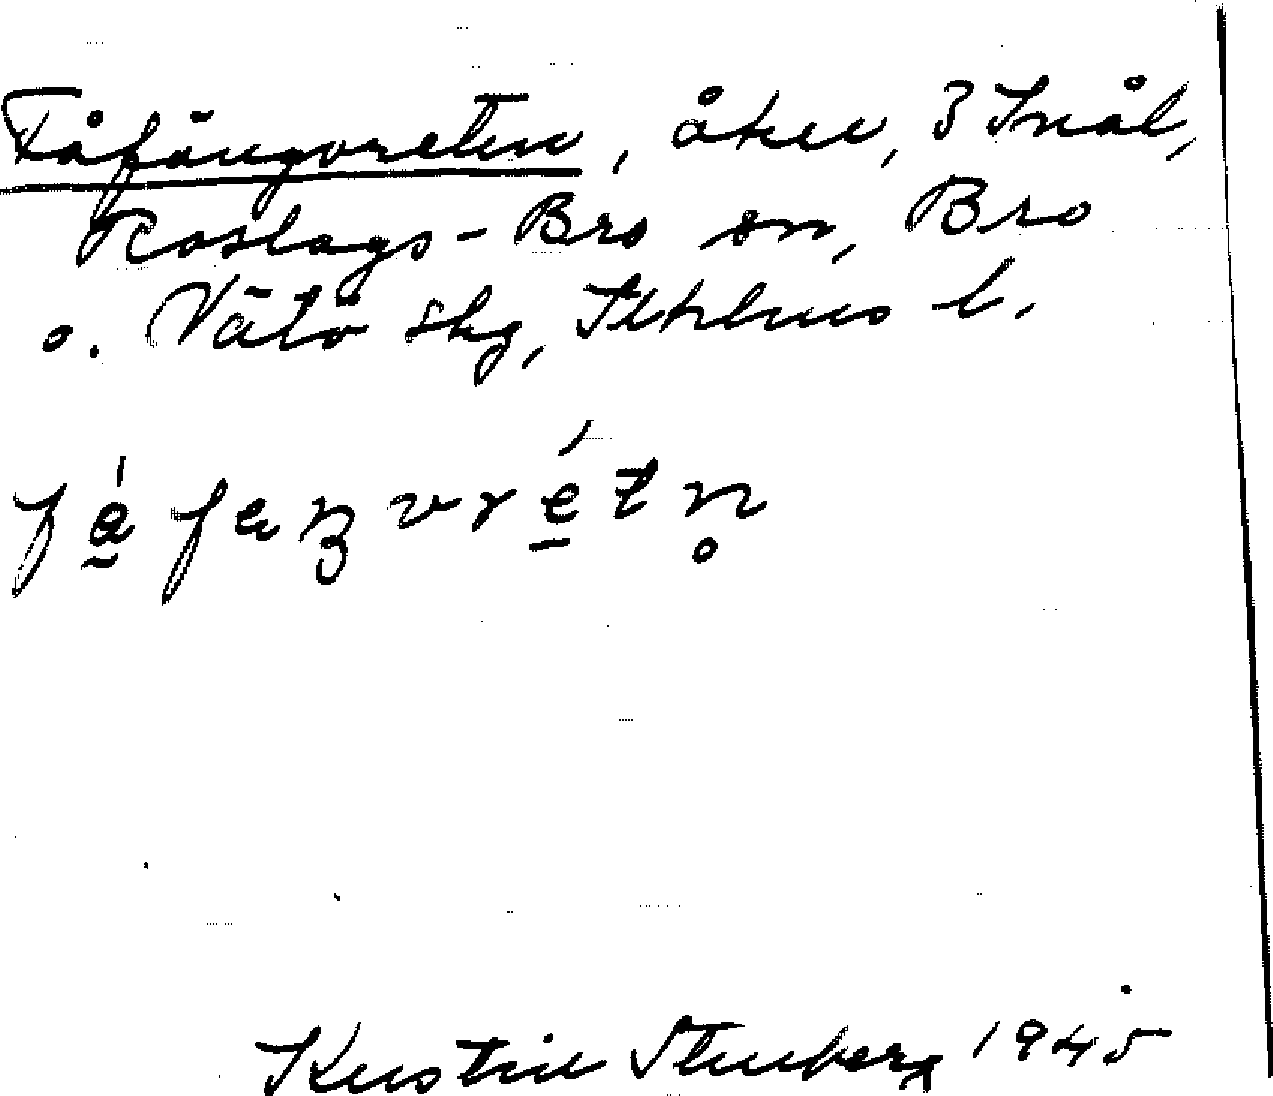 Fåfängvreten, åker, 3 Snål,
Roslags-Bro sn, Bro
o. Vätö skg, Sthlms l.
Kerstin Stenberg 1945